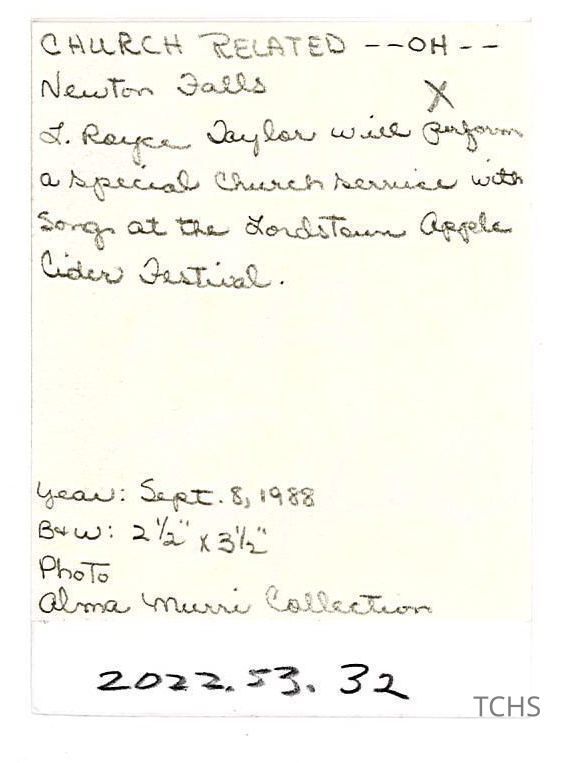 CHURCH RELATED --OH--
Newton Falls X
L. Royce Taylor will perform
a special Church service with
Songs at the Lordstown Apple
Cider Festival.
Year: Sept. 8, 1988
B+W: 2 1/2" x 3 1/2"
Photo
Alma Murri Collection
2022.53.32
TCHS